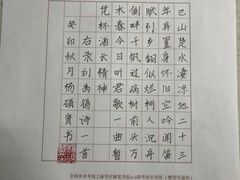 巴山楚水凄凉地二十三
年弃置身怀旧空吟闻笛
赋到乡翻似烂柯人沉舟
侧畔千帆过病树前头万
木春今日听君歌一曲暂
凭杯酒长精神
右录刘禹锡诗一首
癸卯秋月杨硕贤书